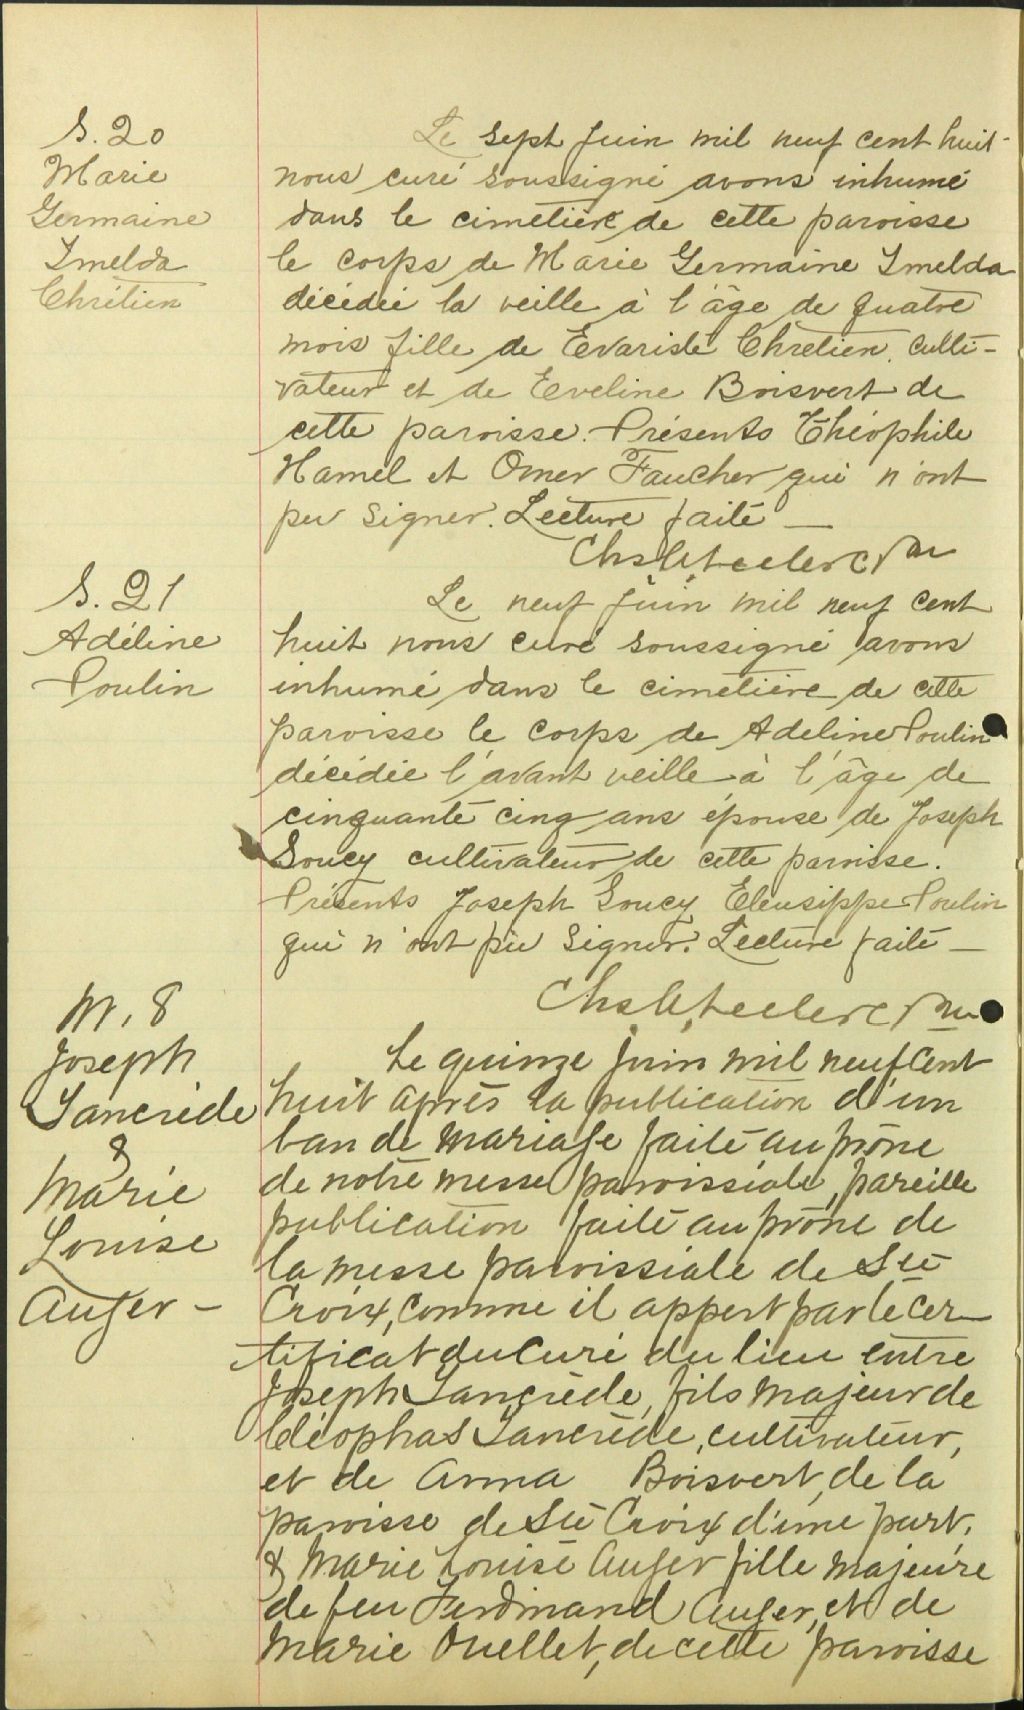 S. 20
Marie
Germaine
Imelda
Chrétien
Le sept juin mil neuf cent huit
nous curé soussigné avons inhumé
dans le cimetière de cette paroisse
le corps de Marie Germaine Imelda
décédée la veille à l'âge de quatre
mois fille de Evariste Chrétien culti-
vateur et de Eveline Boisvert de
cette paroisse. Présents Théophile
Hamel et Omer Faucher qui n'ont
pu signer. Lecture faite —
S. 21
Adéline
Poulin
Le neuf juin mil neuf cent
huit nous curé soussigné avons
inhumé dans le cimetière de cette
paroisse le corps de Adeline Poulin
décédée l'avant veille à l'âge de
cinquante cinq ans épouse de Joseph
Soucy cultivateur de cette paroisse.
Présents Joseph Soucy Eleusippe Poulin
qui n'ont pu signer. Lecture faite —
M. 8
Joseph
Lancrède
&
Marie
Louise
Auger —
Le quinze juin mil neuf cent
huit après la publication d'un
ban de mariage faite au prône
de notre messe paroissiale, pareille
publication faite au prône de
la messe paroissiale de Ste
Croix, comme il appert par le cer-
tificat du curé du lieu entre
Joseph Lancrède, fils majeur de
Cléophas Lancrède, cultivateur,
et de Anna Boisvert, de la
paroisse de Ste Croix d'une part,
& Marie Louise Auger fille majeure
de feu Ferdinand Auger, et de
Marie Ouellet, de cette paroisse